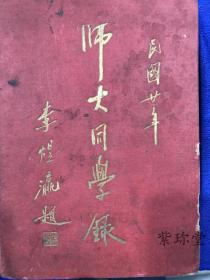 民國廿年
師大同學錄
李煜瀛題
紫珎堂